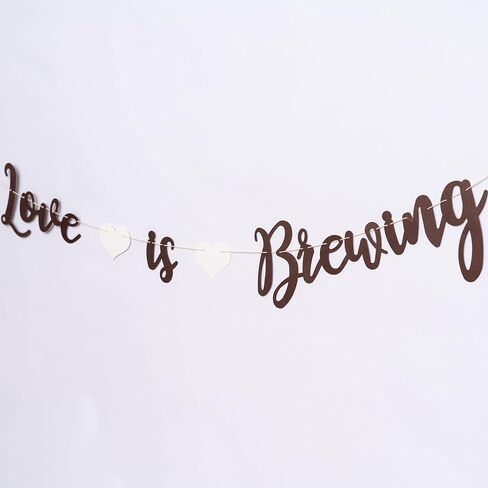 Love is Brewing